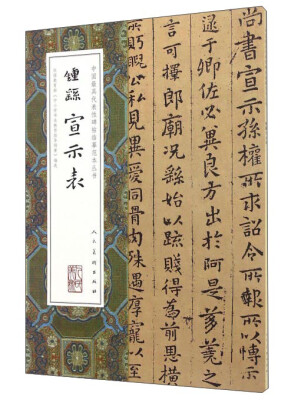 尚書宣示孫權所求詔令所報所以博示
逮于卿佐必冀良方出於阿是芻蕘之
言可擇郎廟況繇始以疏賤得為前恩橫
所眄睨公私見異愛同骨肉殊遇厚寵以至
中国最具代表性碑帖临摹范本丛书
鍾繇宣示表
人民美術出版社